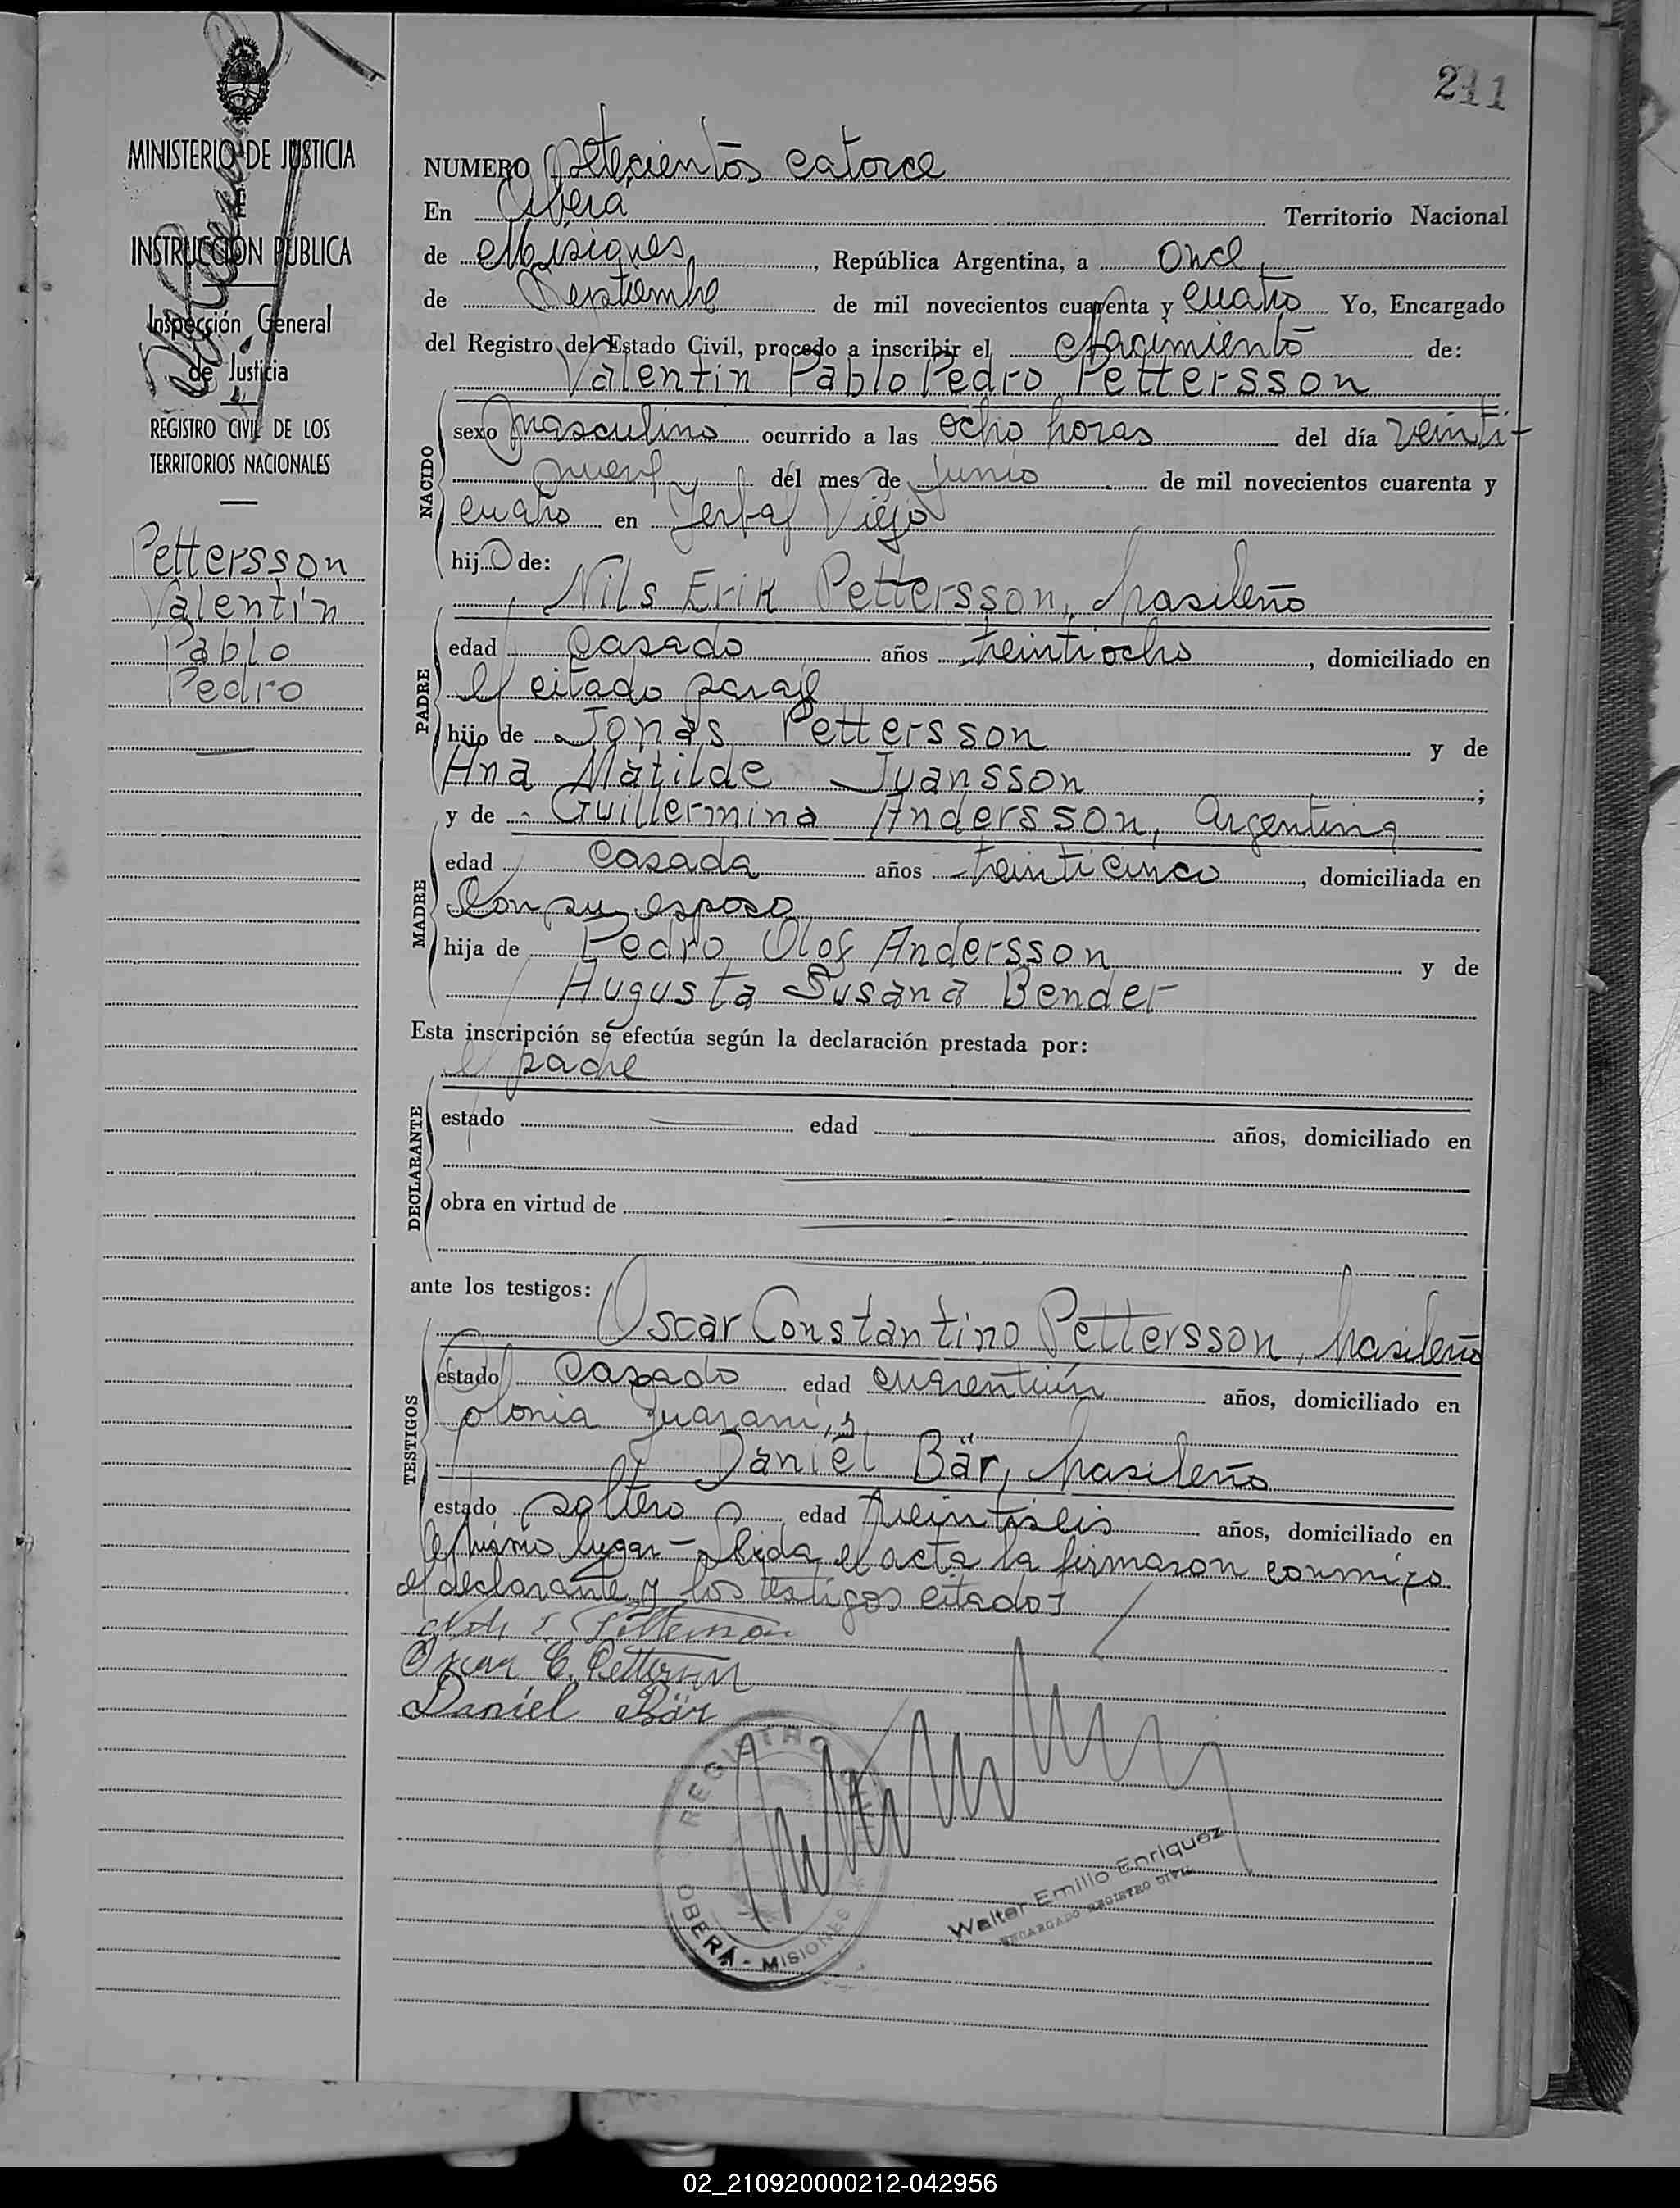 211
MINISTERIO DE JUSTICIA
E
INSTRUCCIÓN PÚBLICA
Inspección General
de Justicia
REGISTRO CIVIL DE LOS
TERRITORIOS NACIONALES
Pettersson
Valentín
Pablo
Pedro
NUMERO Setecientos catorce
En Oberá Territorio Nacional
de Misiones, República Argentina, a once
de Septiembre de mil novecientos cuarenta y cuatro Yo, Encargado
del Registro del Estado Civil, procedo a inscribir el Nacimiento de:
Valentín Pablo Pedro Pettersson
NACIDO
sexo masculino ocurrido a las ocho horas del día veinti-
nueve del mes de Junio de mil novecientos cuarenta y
cuatro en Yerbal Viejo
hijo de:
Nils Erik Pettersson, brasileño
PADRE
edad casado años treintiocho, domiciliado en
el citado paraje
hijo de Jonás Pettersson y de
Ana Matilde Juansson;
y de Guillermina Andersson, Argentina
MADRE
edad casada años treinticinco, domiciliada en
con su esposo
hija de Pedro Olof Andersson y de
Augusta Susana Bender
Esta inscripción se efectúa según la declaración prestada por:
el padre
DECLARANTE
estado edad años, domiciliado en
obra en virtud de
ante los testigos:
Oscar Constantino Pettersson, brasileño
TESTIGOS
estado casado edad cuarentiún años, domiciliado en
Colonia Guaraní, y
Daniel Bär, brasileño
estado soltero edad treintiseis años, domiciliado en
el mismo lugar - Leída el acta la firmaron conmigo
el declarante y los testigos citados
Oscar C. Pettersson
Daniel Bär
REGISTRO CIVIL
OBERÁ - MISIONES
Walter Emilio Enriquez
ENCARGADO REGISTRO CIVIL
02_210920000212-042956